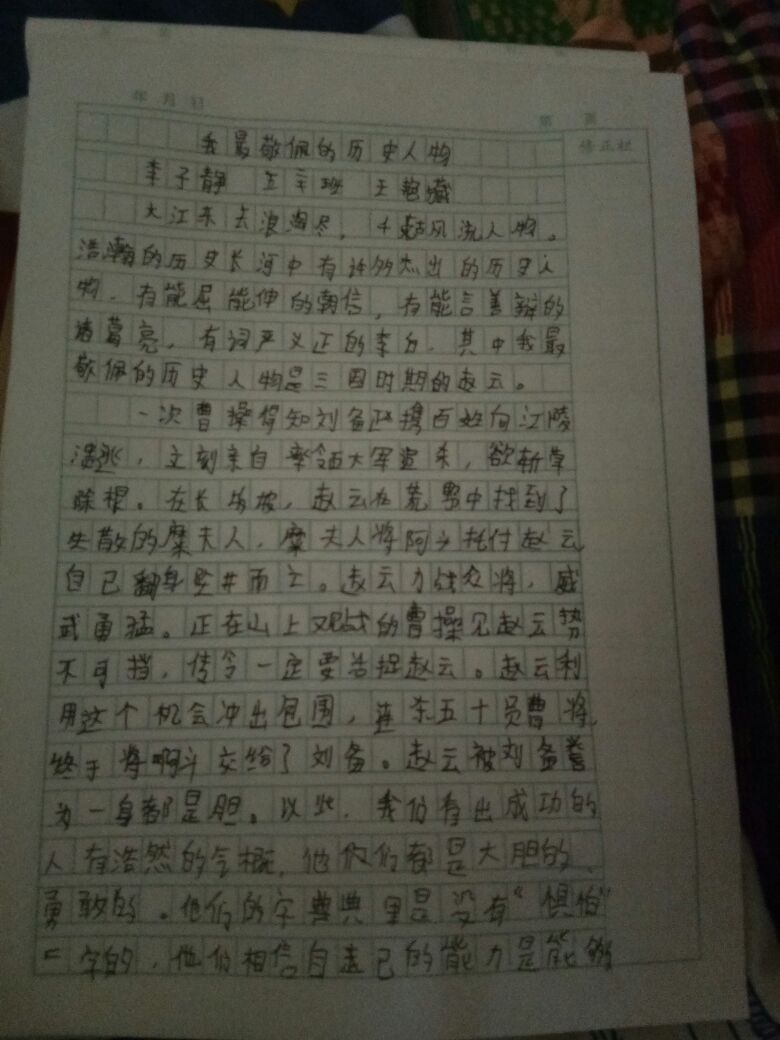 年 月 日
第 页
修正栏
我最敬佩的历史人物
李子静 五 班 王艳
大江东去浪淘尽，千古风流人物。
浩瀚的历史长河中有许多杰出的历史人
物，有能屈能伸的韩信，有能言善辩的
诸葛亮，有词严义正的李白，其中我最
敬佩的历史人物是三国时期的赵云。
一次曹操得知刘备正携百姓向江陵
逃，立刻亲自率领大军追来，欲斩草
除根。在长坂坡，赵云在荒野中找到了
失散的糜夫人，糜夫人将阿斗托付赵云
自己翻身坠井而亡。赵云力战众将，威
武勇猛。正在山上观战的曹操见赵云势
不可挡，传令一定要活捉赵云。赵云利
用这个机会冲出包围，连杀五十员曹将，
终于将啊斗交给了刘备。赵云被刘备誉
为一身都是胆。以此，我们看出成功的
人有浩然的气概，他们都是大胆的、
勇敢的。他们的字典里是没有“惧怕”
二字的，他们相信自己的能力是能够